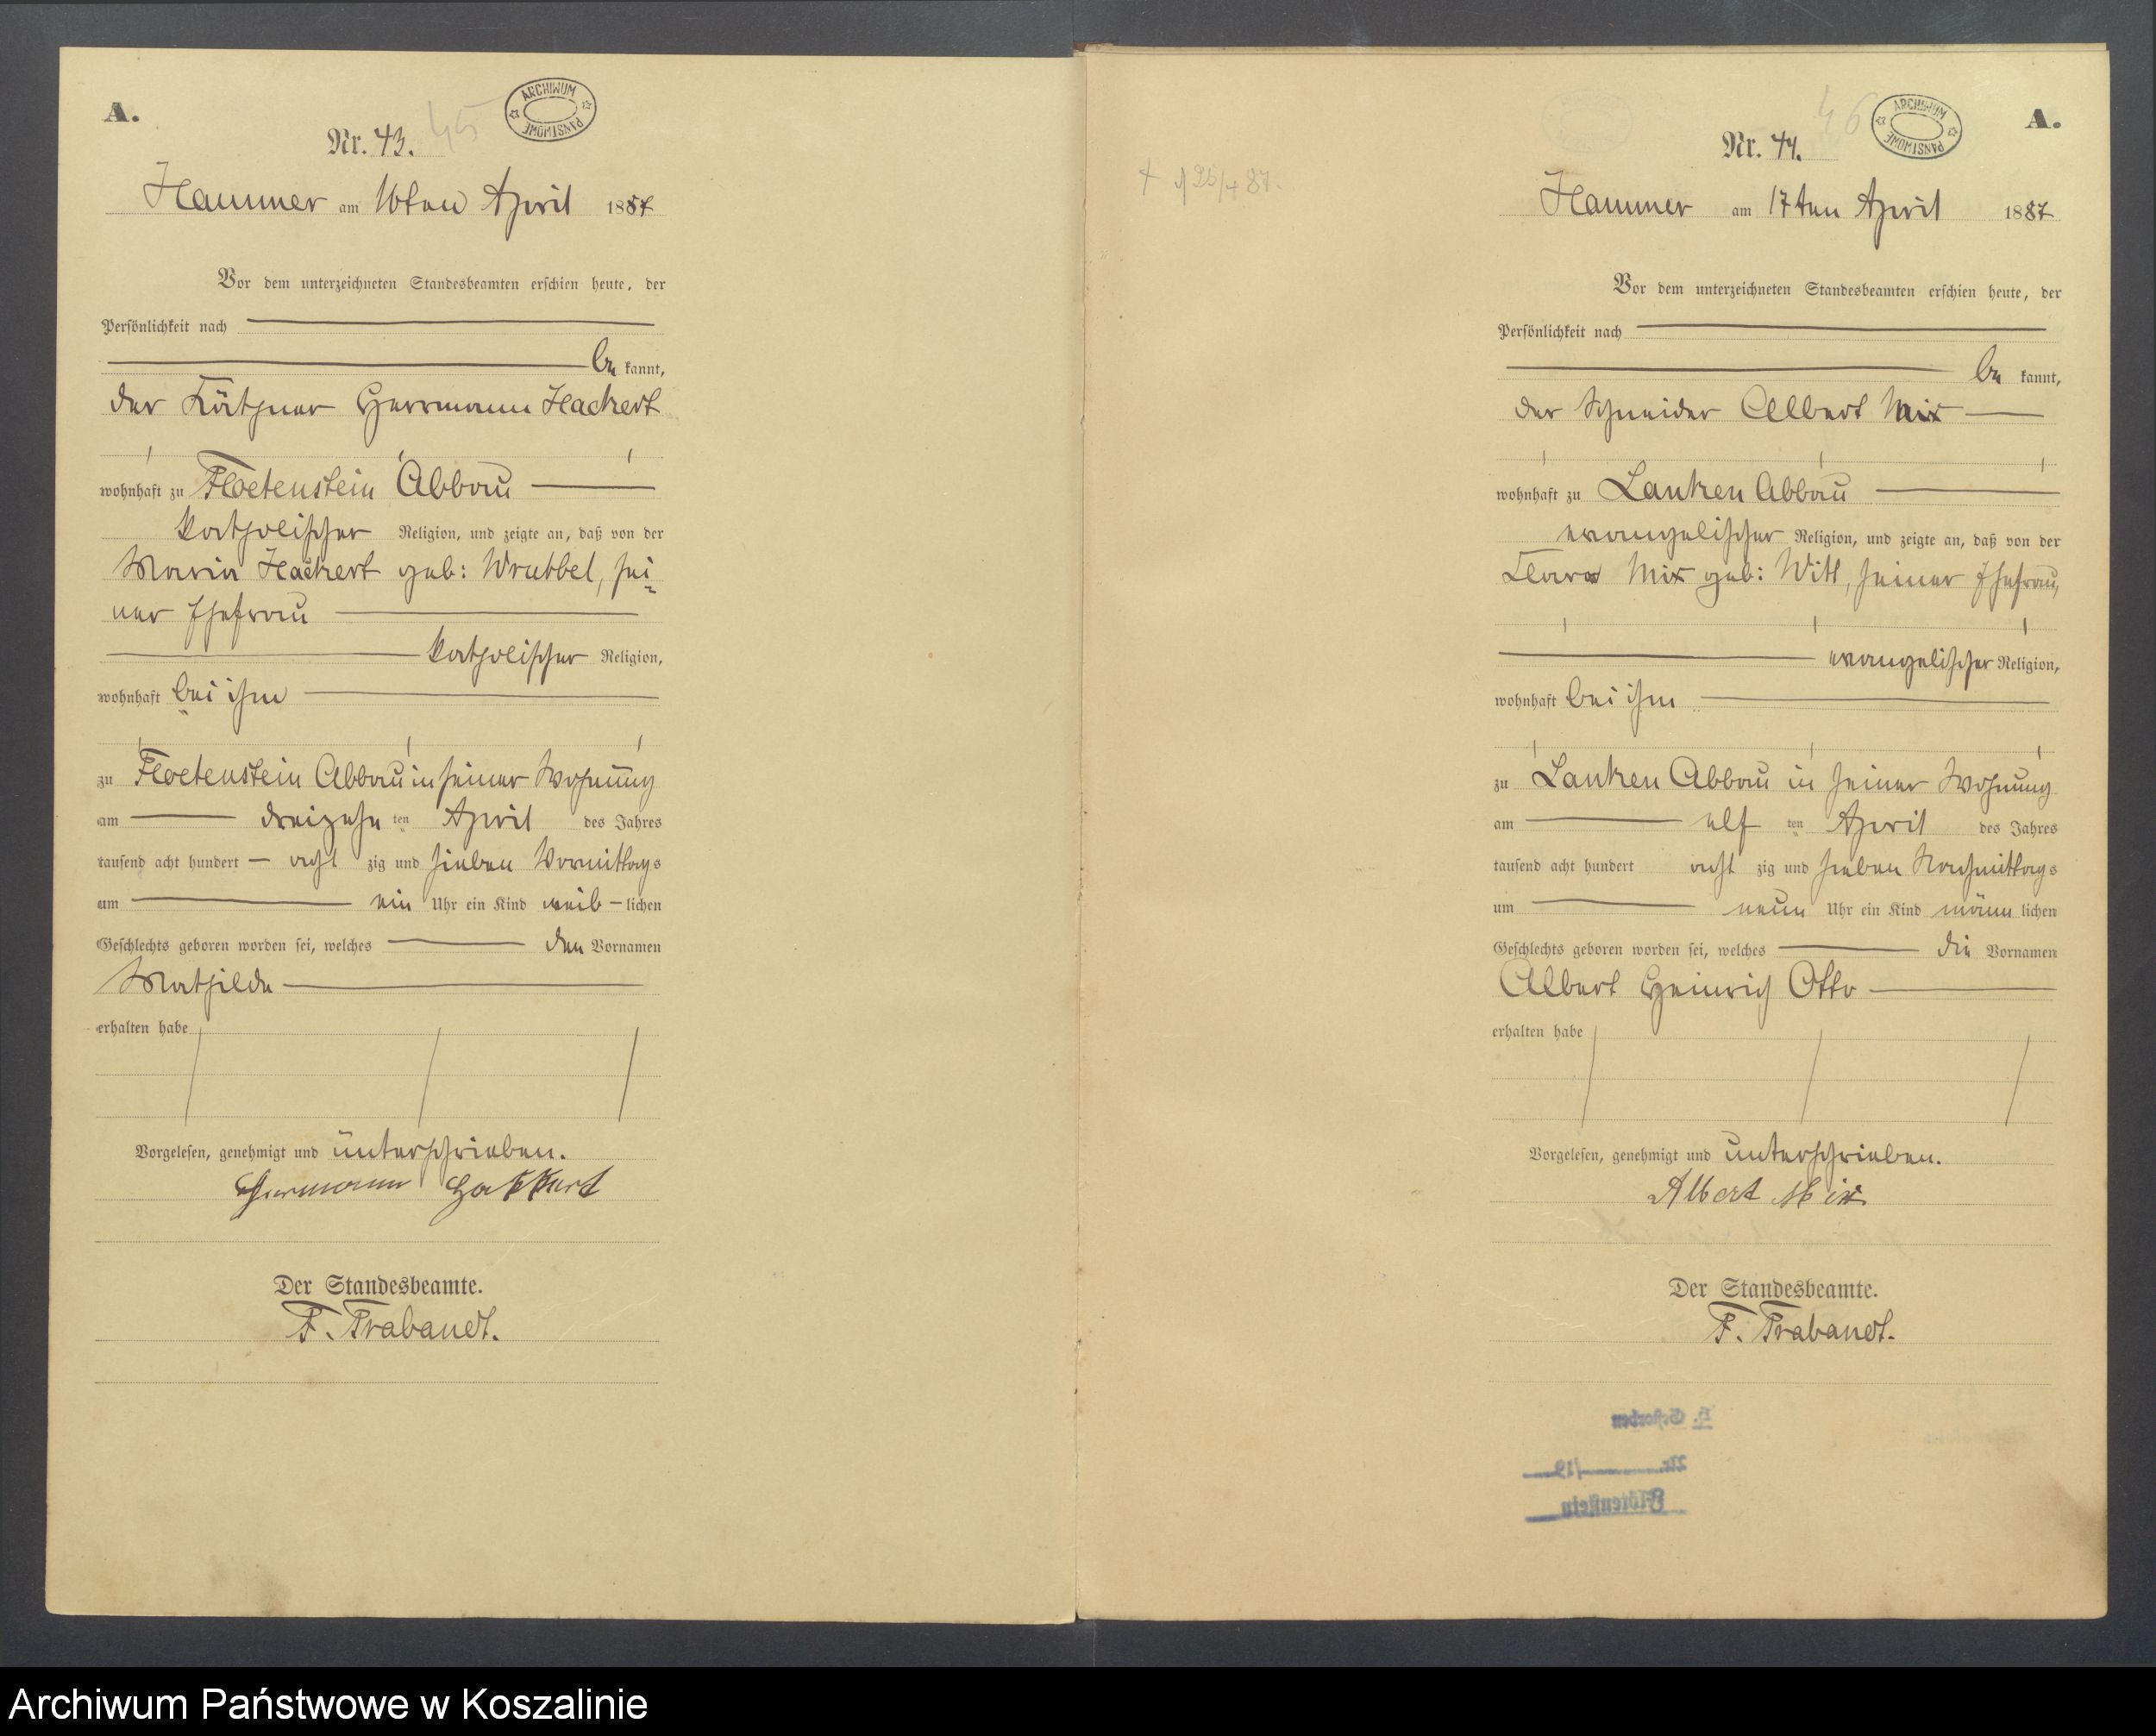 A.
45
ARCHIWUM PAŃSTWOWE
Nr. 43.
Hammer am 16ten April 1887
Vor dem unterzeichneten Standesbeamten erschien heute, der
Persönlichkeit nach
be kannt,
der Käthner Herrmann Hackert
wohnhaft zu Floetenstein Abbau
katholischer Religion, und zeigte an, daß von der
Maria Hackert geb: Wrubbel, sei-
ner Ehefrau
katholischer Religion,
wohnhaft bei ihm
zu Floetenstein Abbau in seiner Wohnung
am dreizehn ten April des Jahres
tausend acht hundert acht zig und sieben Vormittags
um ein Uhr ein Kind weib-lichen
Geschlechts geboren worden sei, welches den Vornamen
Mathilde
erhalten habe
Vorgelesen, genehmigt und unterschrieben.
Hermann Hakkert
Der Standesbeamte.
F. Trabandt.
A.
46
ARCHIWUM PAŃSTWOWE
Nr. 44.
Hammer am 17ten April 1887
Vor dem unterzeichneten Standesbeamten erschien heute, der
Persönlichkeit nach
be kannt,
der Schneider Albert Mix
wohnhaft zu Lanken Abbau
evangelischer Religion, und zeigte an, daß von der
Clara Mix geb: Witt, seiner Ehefrau,
evangelischer Religion,
wohnhaft bei ihm
zu Lanken Abbau in seiner Wohnung
am elf ten April des Jahres
tausend acht hundert acht zig und sieben Nachmittags
um neun Uhr ein Kind männ lichen
Geschlechts geboren worden sei, welches die Vornamen
Albert Heinrich Otto
erhalten habe
Vorgelesen, genehmigt und unterschrieben.
Albert Mix
Der Standesbeamte.
F. Trabandt.
H. Gestorben
Nr. /19
Flötenstein
Archiwum Państwowe w Koszalinie